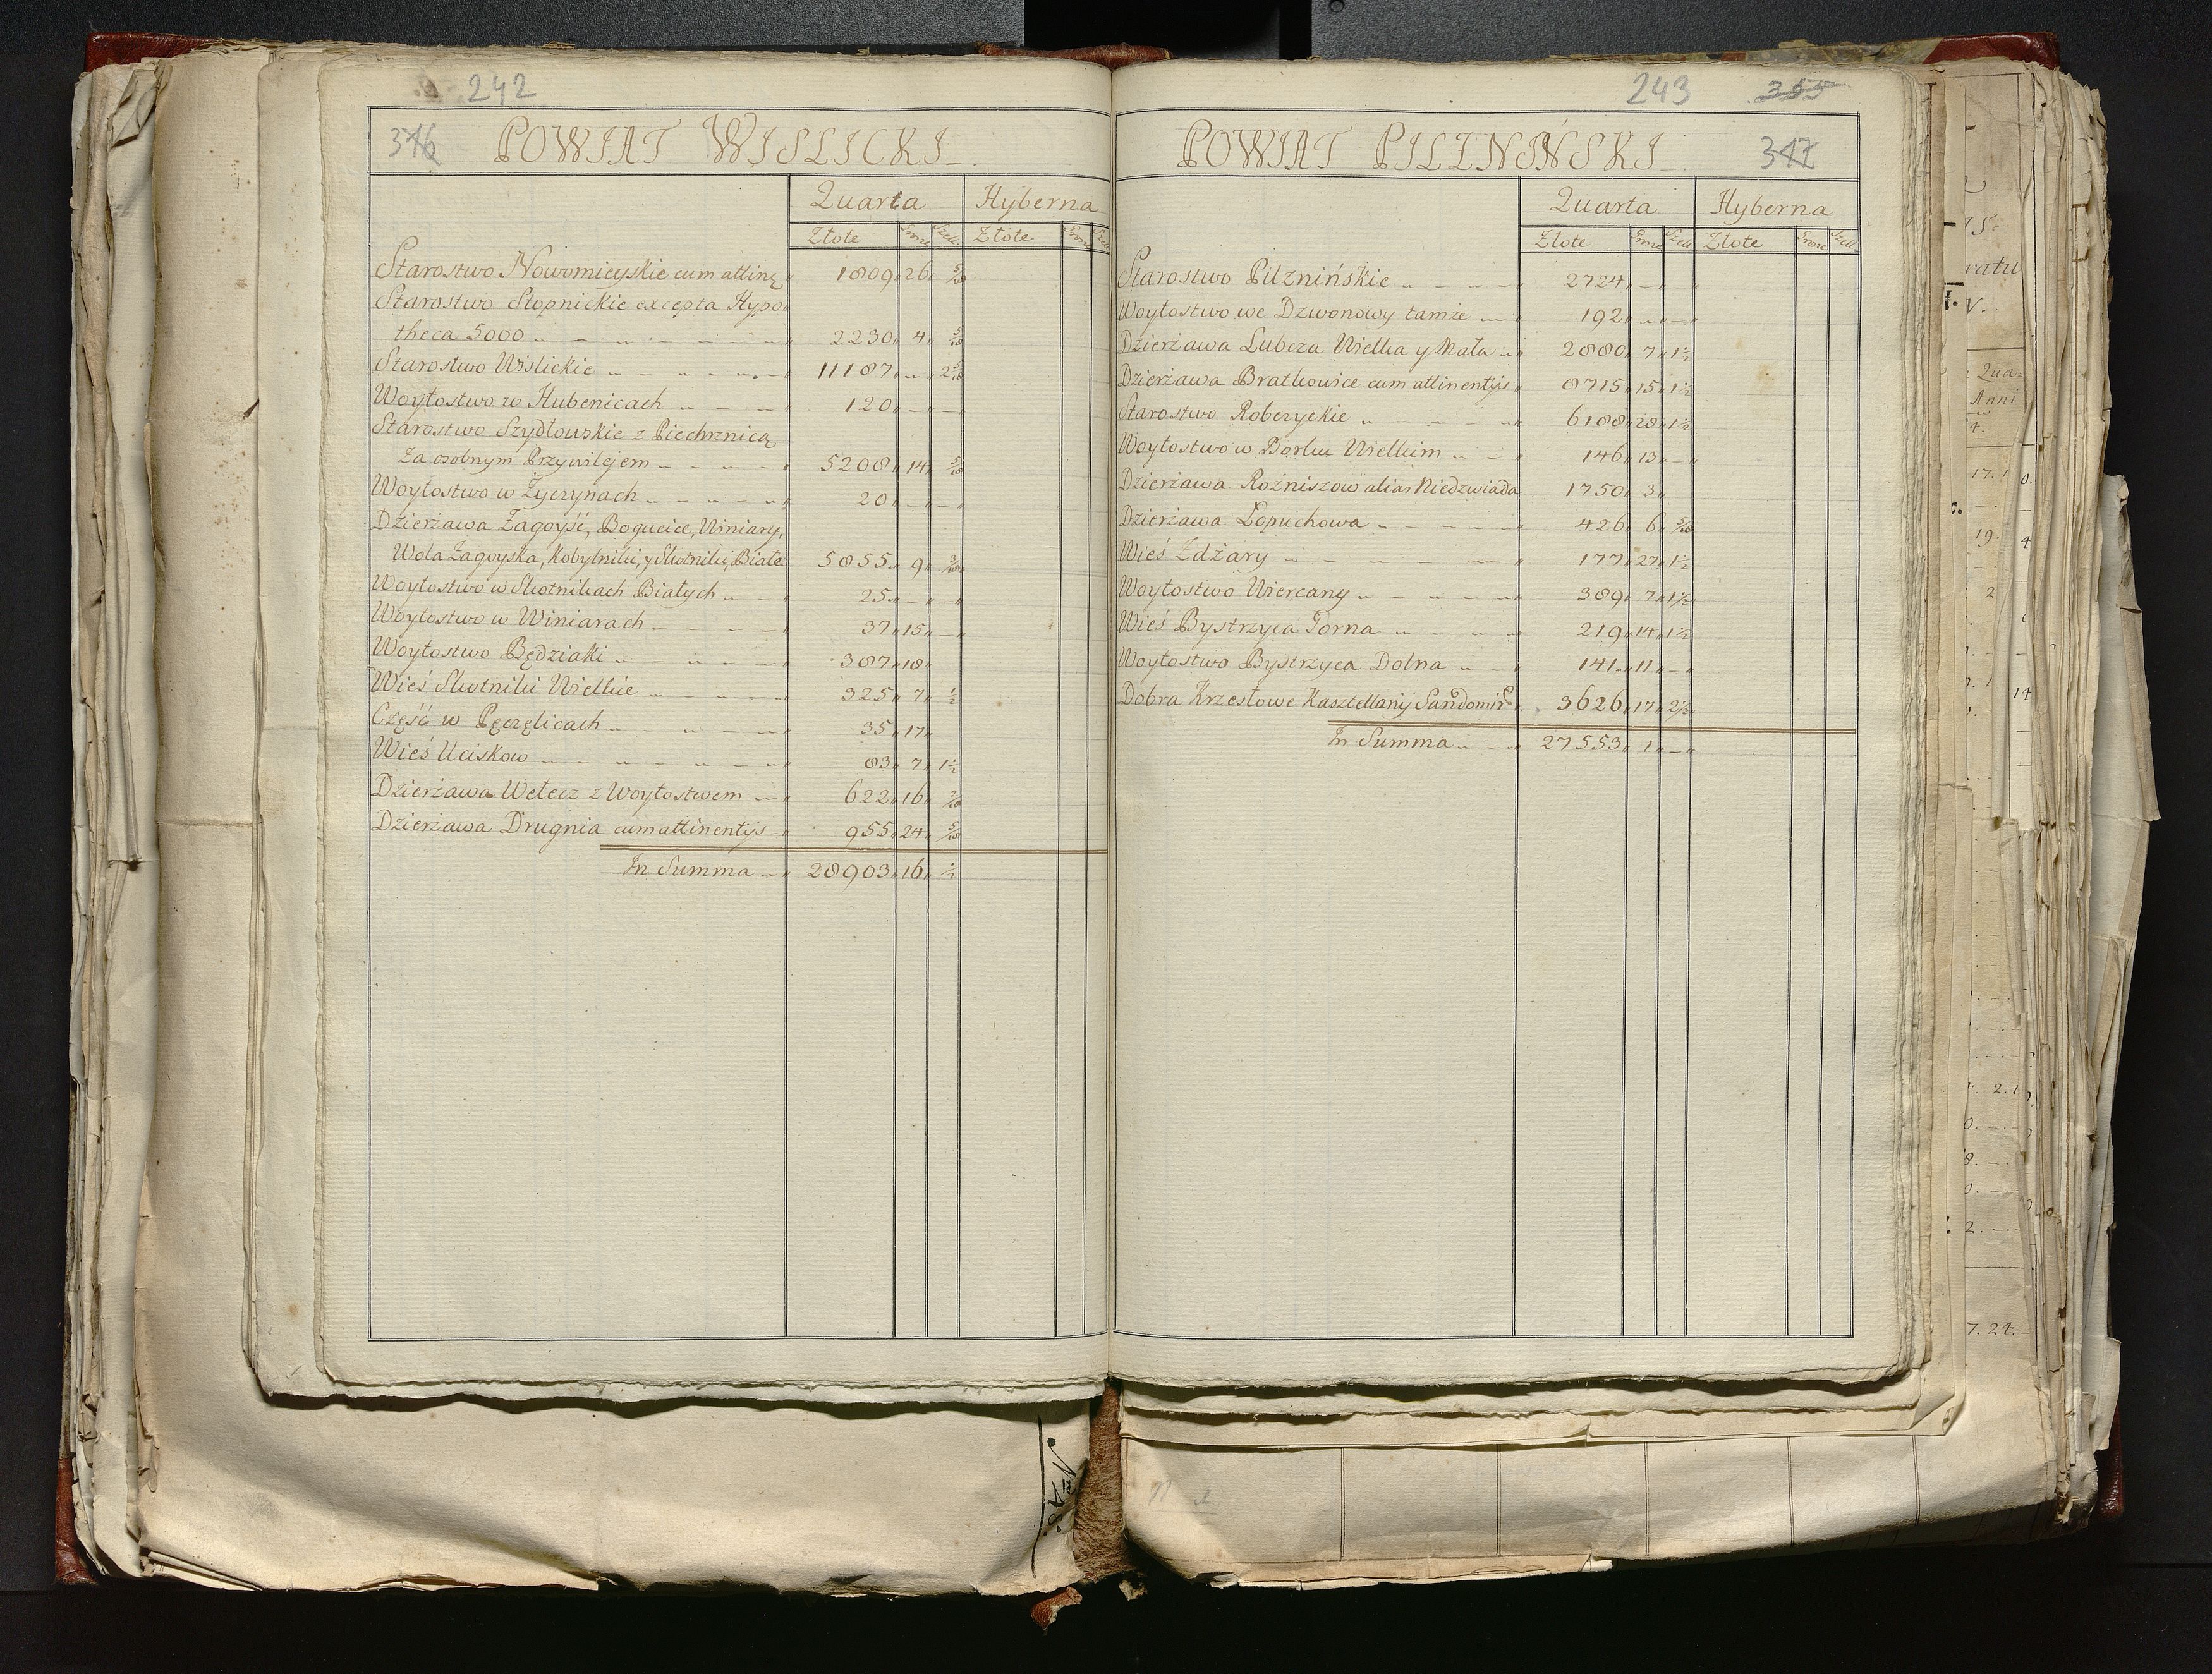 242
346 POWIAT WISLICKI
Quarta Hyberna
Złote Grosze Szel: Złote Grosze Szel:
Starostwo Nowomieyskie cum attinę 1809 26 5/18
Starostwo Stopnickie excepta Hypo
theca 5000 2230 4 5/18
Starostwo Wislickie 11187 - 2 5/18
Woytostwo w Hubenicach 120 - -
Starostwo Szydłowskie z Piechrznicą
Za osobnym Przywilejem 5208 14 5/18
Woytostwo w Życzynach 20 - -
Dzierżawa Zagoyść, Bogucice, Winiary,
Wola Zagoyska, Kobylniki, y Skotniki, Białe 5855 9
Woytostwo w Skotnikach Białych 25 - -
Woytostwo w Winiarach 37 15 -
Woytostwo Będziaki 387 18
Wieś Skotniki Wielkie 325 7 1/2
Część w Pęczelicach 35 17
Wieś Uciskow 83 7 1 1/2
Dzierżawa Wełecz z Woytostwem 622 16
Dzierżawa Drugnia cum attinentijs 955 24 5/18
In Summa 28903 16 1/2
243 355
POWIAT PILZNINŃSKI 347
Quarta Hyberna
Złote Grosze Szel: Złote Grosze Szel:
Starostwo Pilznińskie 2724 - -
Woytostwo we Dzwonowy tamże 192 - -
Dzierżawa Lubcza Wielka y Mała 2880 7 1 1/2
Dzierżawa Bratkowice cum attinentijs 8715 15 1 1/2
Starostwo Robczyckie 6188 28 1 1/2
Woytostwo w Borku Wielkim 146 13 -
Dzierżawa Rożniszow alias Niedzwiada 1750 3
Dzierżawa Łopuchowa 426 6 5/18
Wieś Zdżary 177 27 1 1/2
Woytostwo Wiercany 389 7 1 1/2
Wieś Bystrzyca Gorna 219 14 1 1/2
Woytostwo Bystrzyca Dolna 141 11 -
Dobra Krzesłowe Kasztellanij Sandomir 3626 17 2 1/2
In Summa 27553 1 -